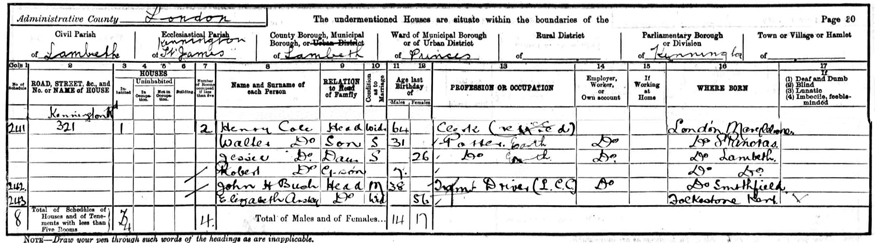 Administrative County London The undermentioned Houses are situate within the boundaries of the Page 20
Civil Parish Ecclesiastical Parish County Borough, Municipal Borough, or Urban District Ward of Municipal Borough or of Urban District Rural District Parliamentary Borough or Division Town or Village or Hamlet
of Lambeth of Kennington St James of Lambeth of Princes of of Kennington of
Cols 1 2 3 4 5 6 7 8 9 10 11 12 13 14 15 16 17
No. of Schedule ROAD, STREET, &c., and No. or NAME of HOUSE HOUSES Inhabited Uninhabited In Occupation Not in Occupation Building Number of Name and Surname of each Person RELATION to Head of Family Condition as to Marriage Age last Birthday of Males Females PROFESSION OR OCCUPATION Employer, Worker, or Own account If Working at Home WHERE BORN (1) Deaf and Dumb (2) Blind (3) Lunatic (4) Imbecile, feeble-minded
Kennington Rd
241 321 1 2 Henry Cole Head Wid 64 Clerk London
Walter Do Son S 31 Do St Pancras
Jessie Do Daur S 26 Do Do Do Lambeth
Robert Do 7 Do Do
242 John H Bush Head M 38 Tram Driver (L.C.C) Do Do Smithfield
243 Elizabeth Do Wid 56 Kent
8 Total of Schedules of Houses and of Tenements with less than Five Rooms 4 Total of Males and of Females... 14 17
NOTE—Draw your pen through such words of the headings as are inapplicable.